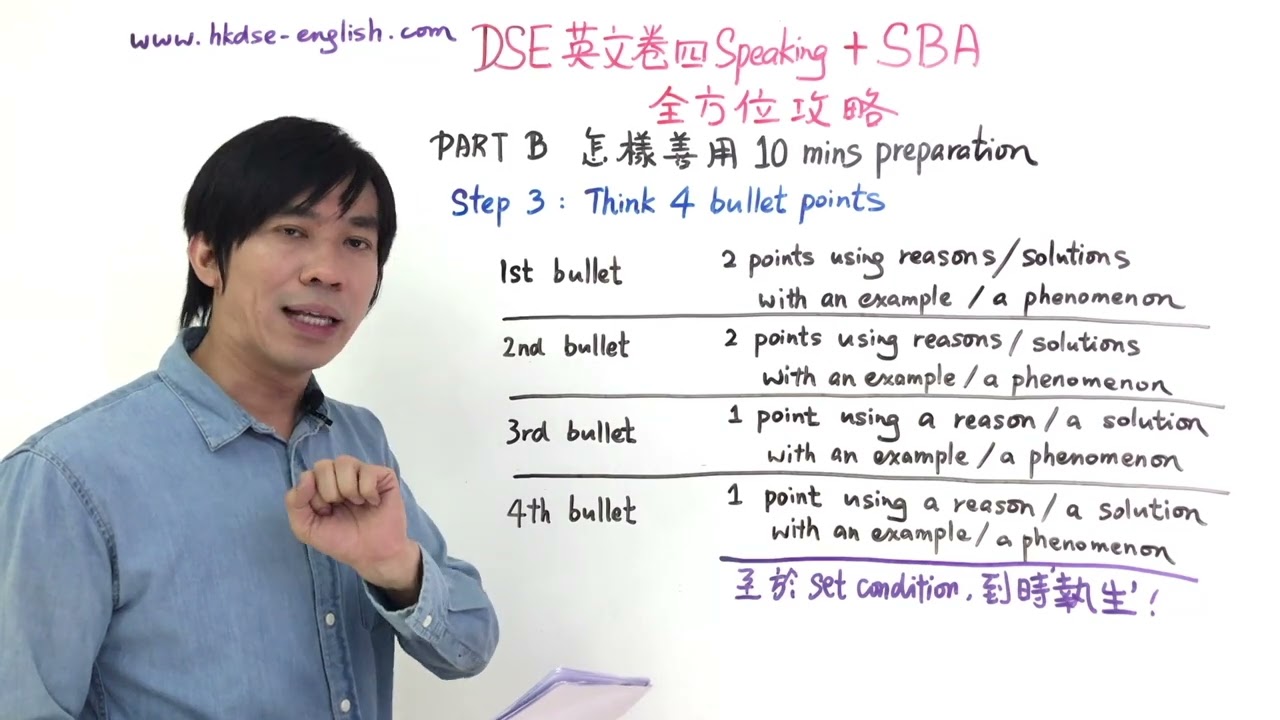 www.hkdse-english.com
DSE 英文卷四 Speaking + SBA
全方位攻略
PART B 怎樣善用 10 mins preparation
Step 3 : Think 4 bullet points
1st bullet 2 points using reasons/solutions
with an example / a phenomenon
2nd bullet 2 points using reasons/solutions
with an example/a phenomenon
3rd bullet 1 point using a reason/a solution
with an example/a phenomenon
4th bullet 1 point using a reason/a solution
with an example/a phenomenon
至於 set condition, 到時'執生'!